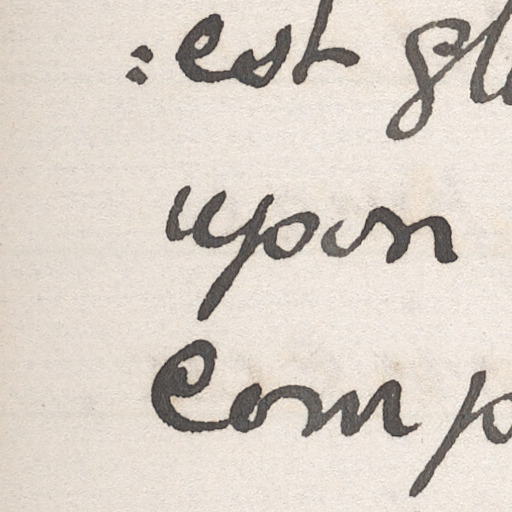 :est gl
upon
Comp